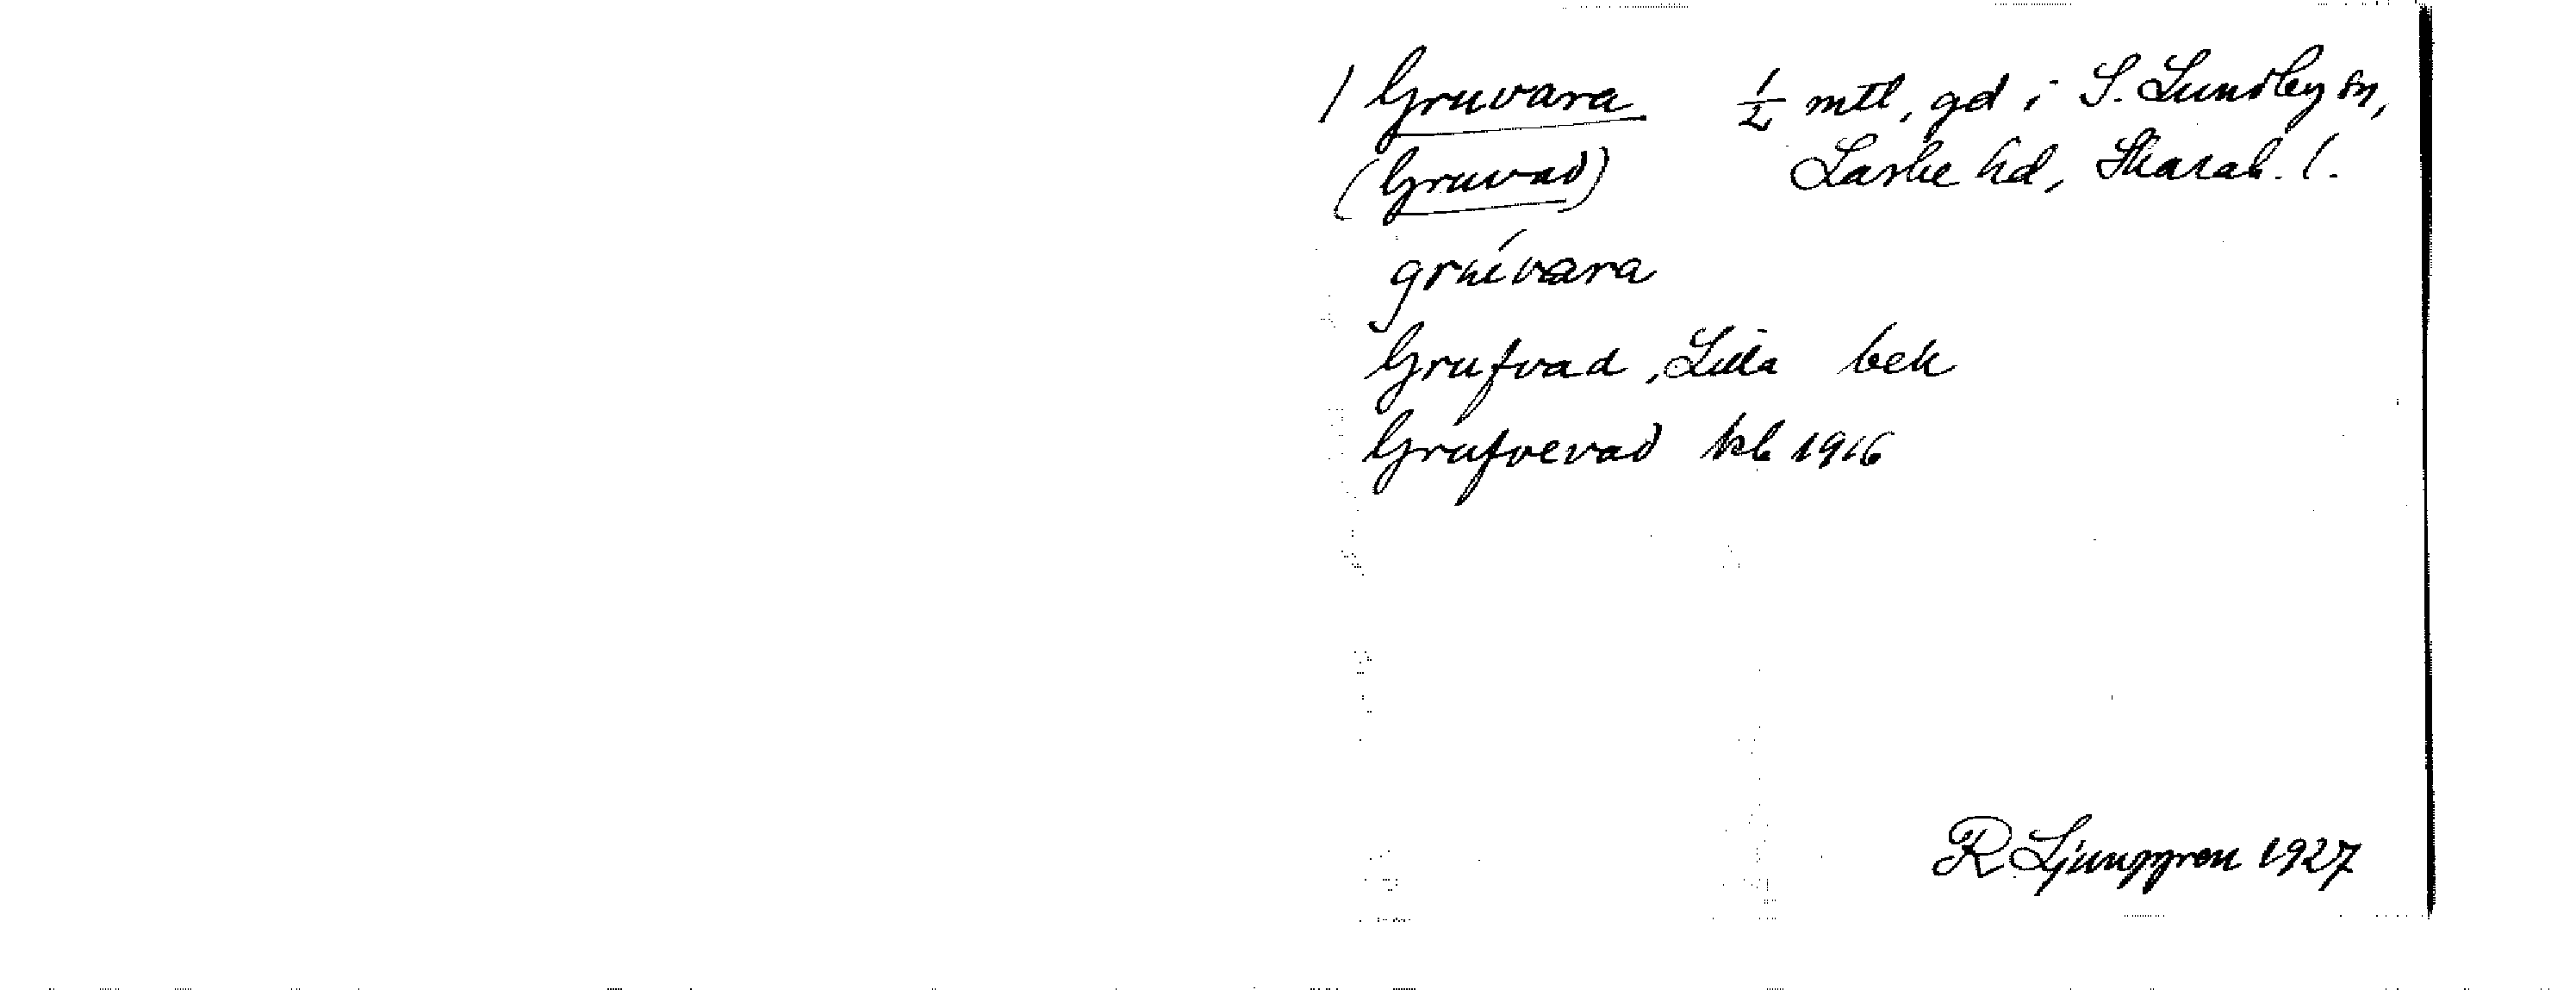 / Gruvara ½ mtl, gd i S. Lundby sn,
(Gruvad) Laske hd, Skarab. l.
grúvara
Grufvad, Lilla bek
Grufvevad kb 1916
R Ljunggren 1927